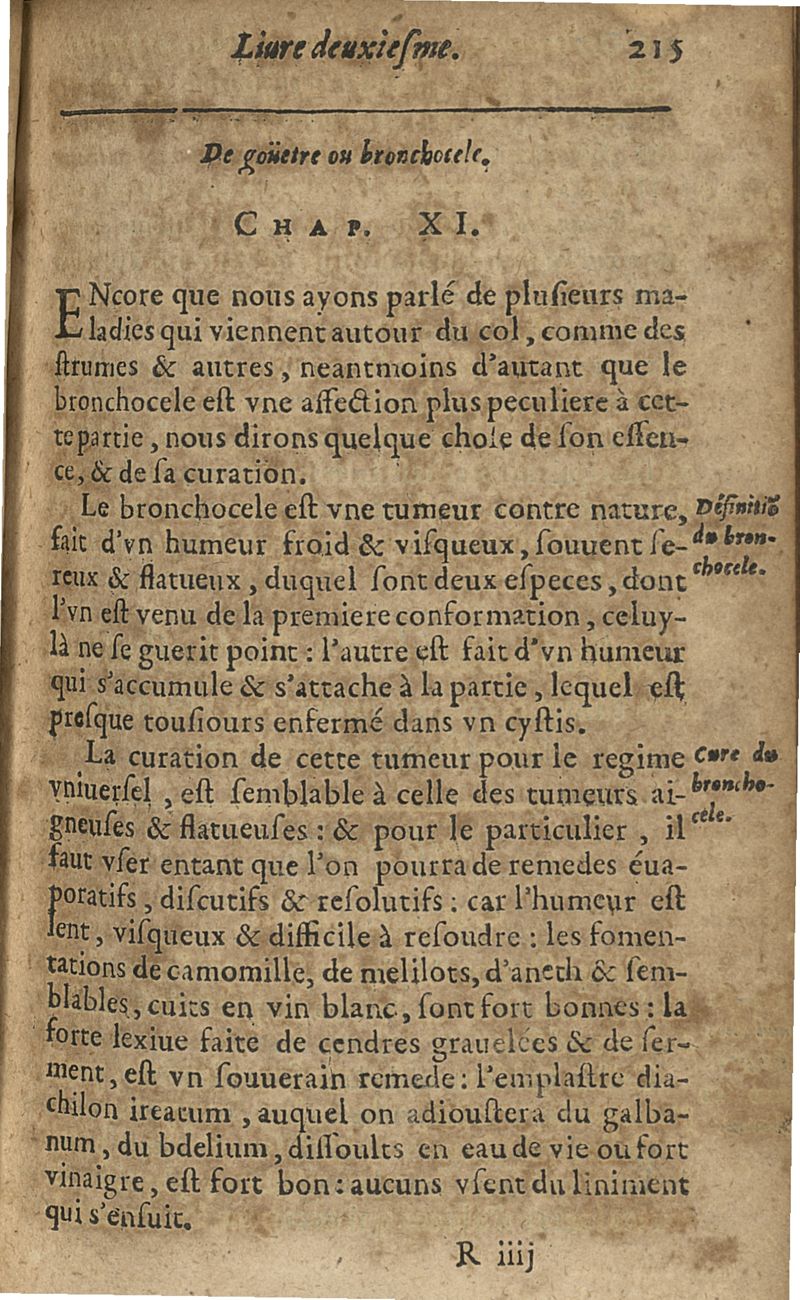 Liure deuxieſme. 215
De goüetre ou bronchocele.
CHAP. XI.
ENcore que nous ayons parlé de pluſieurs ma-
ladies qui viennent autour du col, comme des
ſtrumes & autres, neantmoins d'autant que le
bronchocele eſt vne affection plus peculiere à cet-
te partie, nous dirons quelque choſe de ſon eſſen-
ce, & de ſa curation.
Le bronchocele eſt vne tumeur contre nature,
Définitiõ
fait d'vn humeur froid & viſqueux, ſouuent ſe-
du bron-
reux & flatueux, duquel ſont deux eſpeces, dont
chocele.
l'vn eſt venu de la premiere conformation, celuy-
là ne ſe guerit point : l'autre eſt fait d'vn humeur
qui s'accumule & s'attache à la partie, lequel eſt
preſque touſiours enfermé dans vn cyſtis.
La curation de cette tumeur pour le regime
Cure du
vniuerſel, eſt ſemblable à celle des tumeurs ai-
broncho-
gneuſes & flatueuſes : & pour le particulier, il
cele.
faut vſer entant que l'on pourra de remedes éua-
poratifs, diſcutifs & reſolutifs : car l'humeur eſt
lent, viſqueux & difficile à reſoudre : les fomen-
tations de camomille, de melilots, d'aneth & ſem-
blables, cuits en vin blanc, ſont fort bonnes : la
forte lexiue faite de cendres grauelées & de ſer-
ment, eſt vn ſouuerain remede : l'emplaſtre dia-
chilon ireatum, auquel on adiouſtera du galba-
num, du bdelium, diſſoults en eau de vie ou fort
vinaigre, eſt fort bon : aucuns vſent du liniment
qui s'enſuit.
R iiij